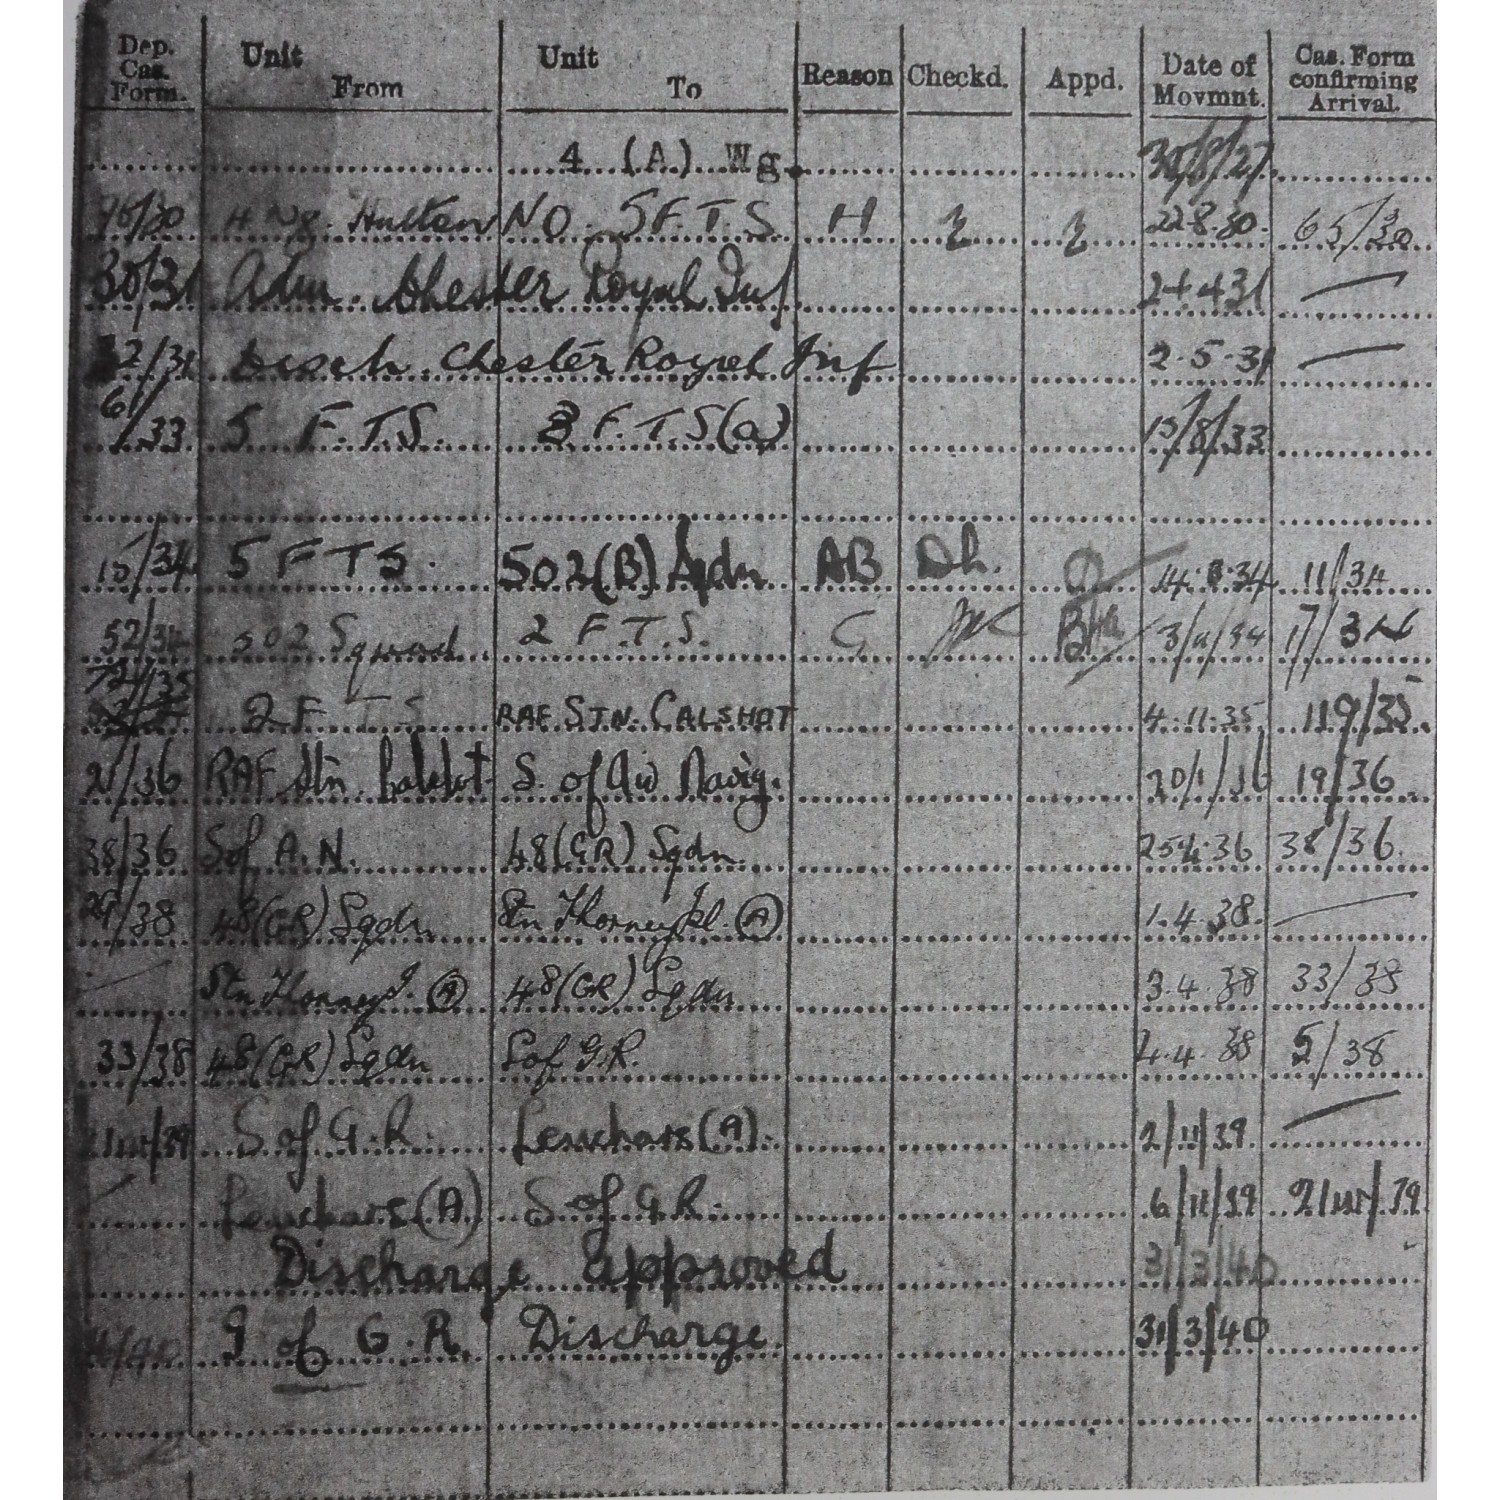 Dep. Cas. Form. Unit From Unit To Reason Checkd. Appd. Date of Movmnt. Cas. Form confirming Arrival.
4 (A.) Wg. 30/8/27
76/30 4 Wg. Halton NO. 5 F.T.S H 22.8.30. 65/30
30/31 Adm. Chester Royal Inf 24.4.31
32/31 Disch. Chester Royal Inf 2.5.31
61/33 5 F.T.S. 3 F.T.S(a) 15/8/33
15/34 5 F T S. 502(B) Sqdn AB Dh. 14. .34 11/34
52/34 502 Squad 2 F.T.S. C 17/34
72/35 2 F T S RAF. STN. CALSHOT 4.11.35 119/35.
2/36 RAF Stn. Calshot. S. of Air Navig. 20/1/36 19/36.
38/36 S of A.N. 48(GR) Sqdn. 25.4.36 38/36.
29/38 48(GR) Sqdn Stn Thorney Isl. (A) 1.4.38.
Stn Thorney I. (A) 48(GR) Sqdn 3.4.38 33/38
33/38 48(GR) Sqdn S of G.R. 4.4.38 5/38
S of G.R. Leuchars(A). 2/11/39.
Leuchars(A) S of G.R. 6/11/39
Discharge approved 31/3/40
S of G.R. Discharge. 31/3/40